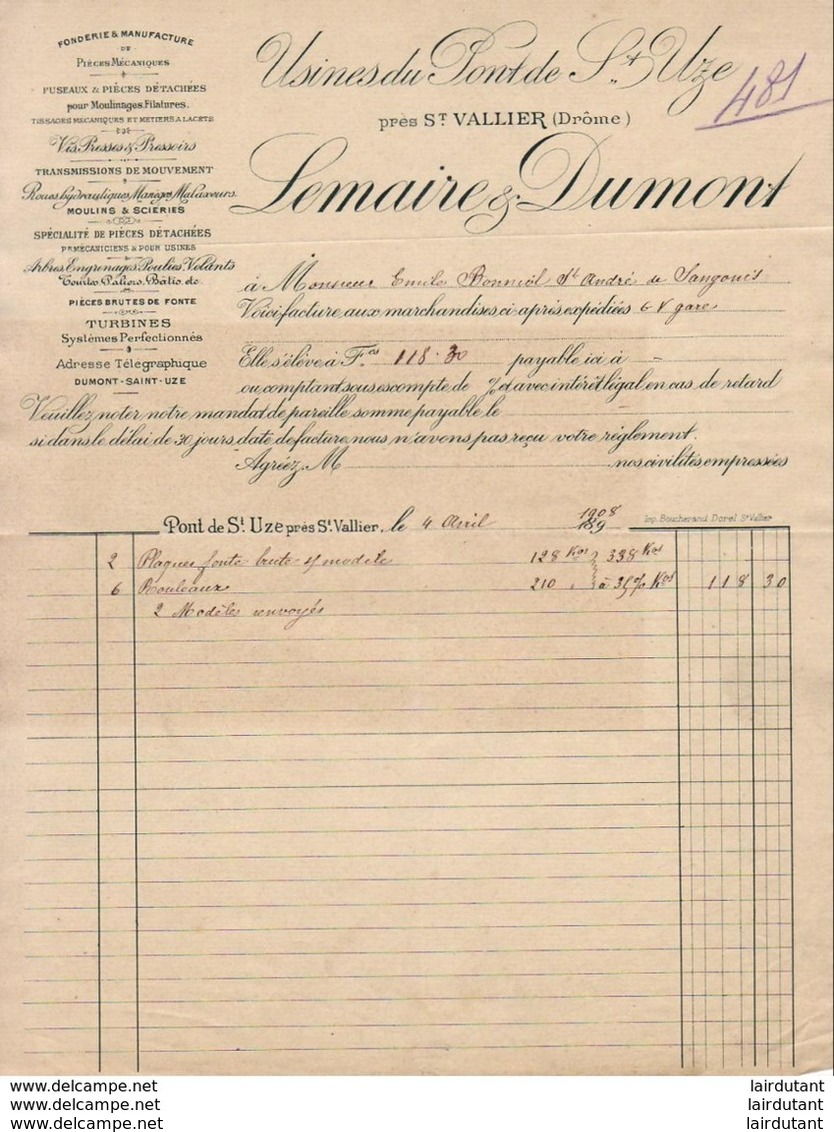 FONDERIE & MANUFACTURE
DE
PIÈCES MÉCANIQUES
FUSEAUX & PIÈCES DÉTACHÉES
pour Moulinages, Filatures.
TISSAGES MÉCANIQUES ET MÉTIERS A LACETS
Vis, Presses & Pressoirs
TRANSMISSIONS DE MOUVEMENT
Roues hydrautiques, Manèges, Malaxeurs.
MOULINS & SCIERIES
SPÉCIALITÉ DE PIÈCES DÉTACHÉES
PR MÉCANICIENS & POUR USINES
Arbres, Engrenages, Poulies, Volants
Tourtes, Paliers, Bâtis, etc.
PIÈCES BRUTES DE FONTE
TURBINES
Systèmes Perfectionnés
Adresse Télégraphique
DUMONT-SAINT-UZE
Usines du Pont de St Uze
481
près ST VALLIER (Drôme)
Lemaire & Dumont
à Monsieur Emile Bonniol St André de Sangonis
Voici facture aux marchandises ci-après expédiées G V gare
Elle s'élève à Fcs 118.30 payable ici à
ou comptant sous escompte de % et avec intérêt légal en cas de retard
Veuillez noter notre mandat de pareille somme payable le
si dans le délai de 30 jours, date de facture, nous n'avons pas reçu votre règlement.
Agréez, M nos civilités empressées
Pont de St Uze près St Vallier, le 4 Avril 1908
189
Imp. Boucherand Dorel St Vallier
2 Plaques fonte brute s/ modèle 128 Kos 338 Kos
6 Rouleaux 210 " à 35% Kos 118 30
2 Modèles renvoyés
https://www.delcampe.net lairdutant
https://www.delcampe.net lairdutant
https://www.delcampe.net lairdutant